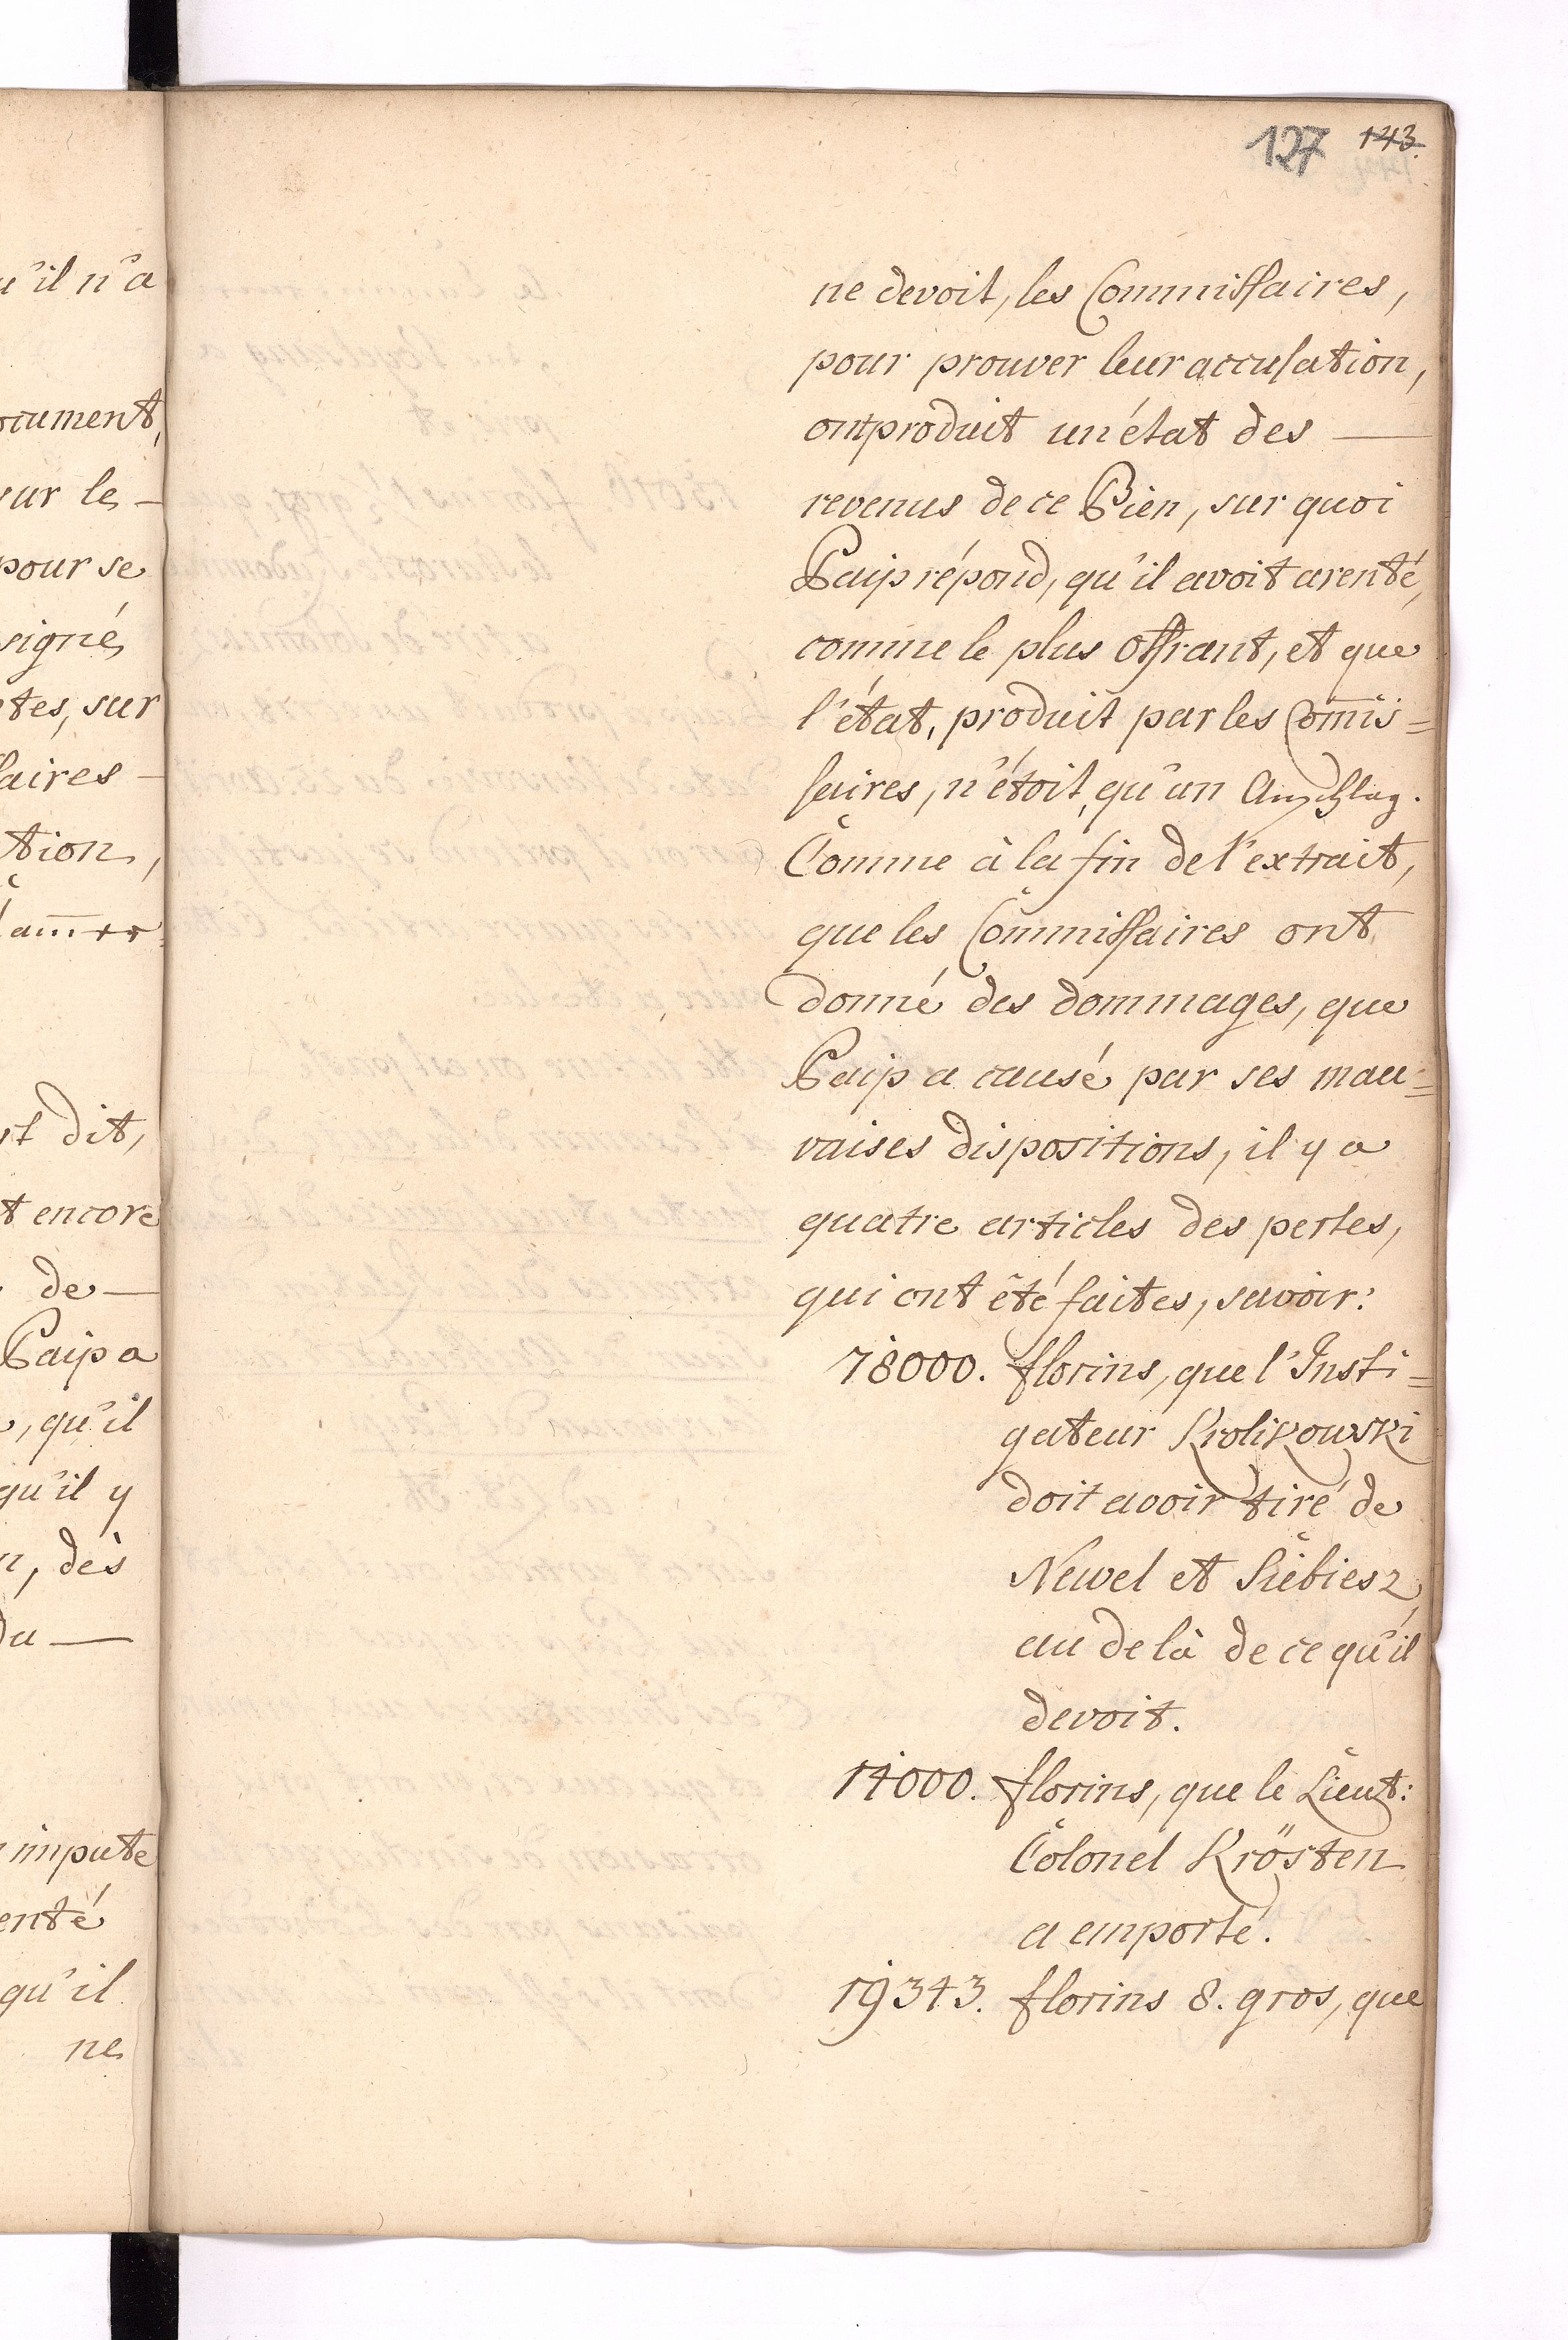 u'il n'a
ocument,
sur le –
pour se
signé,
tes, sur
saires –
tion,
st dit,
t encore
de —
Paip a
, qu'il
qu'il y
n, dès
du —
impute
enté
qu'il
ne
127 143.
ne devoit, les Commissaires,
pour prouver leur accusation,
ont produit un état des —
revenus de ce Bien, sur quoi
Paip répond, qu'il avoit arenté,
comme le plus offrant, et que
l'état, produit par les Com̄is=
saires, n'étoit, qu'un Anschlag.
Comme à la fin de l'extrait,
que les Commissaires ont
donné des dommages, que
Paip a causé par ses mau=
vaises dispositions, il y a
quatre articles des pertes,
qui ont été faites, savoir:
78000. florins, que l'Insti=
gateur Krolikowski
doit avoir tiré de
Newel et Siebiesz,
au de là de ce qu'il
devoit.
14000. florins, que le Lieut:
Colonel Krösten
a emporté.
19343. florins 8. gros, que